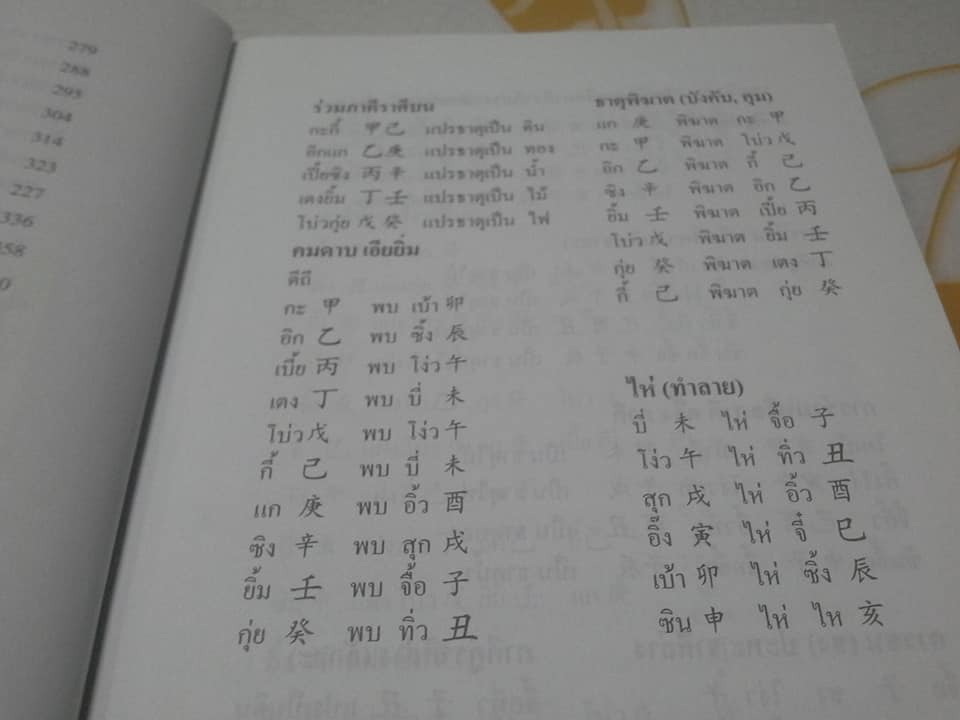 279
288
295
304
314
323
227
336
358
0
ร่วมภาคีราศีบน
กะกี้ 甲己 แปรธาตุเป็น ดิน
อิกแก 乙庚 แปรธาตุเป็น ทอง
เปี้ยซิง 丙辛 แปรธาตุเป็น น้ำ
เตงยิ้ม 丁壬 แปรธาตุเป็น ไม้
โบ่วกุ่ย 戊癸 แปรธาตุเป็น ไฟ
คมดาบ เอียยิ่ม
ดิถี
กะ 甲 พบ เบ้า 卯
อิก 乙 พบ ซิ้ง 辰
เปี้ย 丙 พบ โง่ว 午
เตง 丁 พบ บี่ 未
โบ่ว 戊 พบ โง่ว 午
กี้ 己 พบ บี่ 未
แก 庚 พบ อิ้ว 酉
ซิง 辛 พบ สุก 戌
ยิ้ม 壬 พบ จื้อ 子
กุ่ย 癸 พบ ทิ่ว 丑
ธาตุพิฆาต (บังคับ, คุม)
แก 庚 พิฆาต กะ 甲
กะ 甲 พิฆาต โบ่ว 戊
อิก 乙 พิฆาต กี้ 己
ซิง 辛 พิฆาต อิก 乙
ยิ้ม 壬 พิฆาต เปี้ย 丙
โบ่ว 戊 พิฆาต ยิ้ม 壬
กุ่ย 癸 พิฆาต เตง 丁
กี้ 己 พิฆาต กุ่ย 癸
ไห่ (ทำลาย)
บี่ 未 ไห่ จื้อ 子
โง่ว 午 ไห่ ทิ่ว 丑
สุก 戌 ไห่ อิ้ว 酉
อิ๊ง 寅 ไห่ จี๋ 巳
เบ้า 卯 ไห่ ซิ้ง 辰
ซิน 申 ไห่ ไห 亥